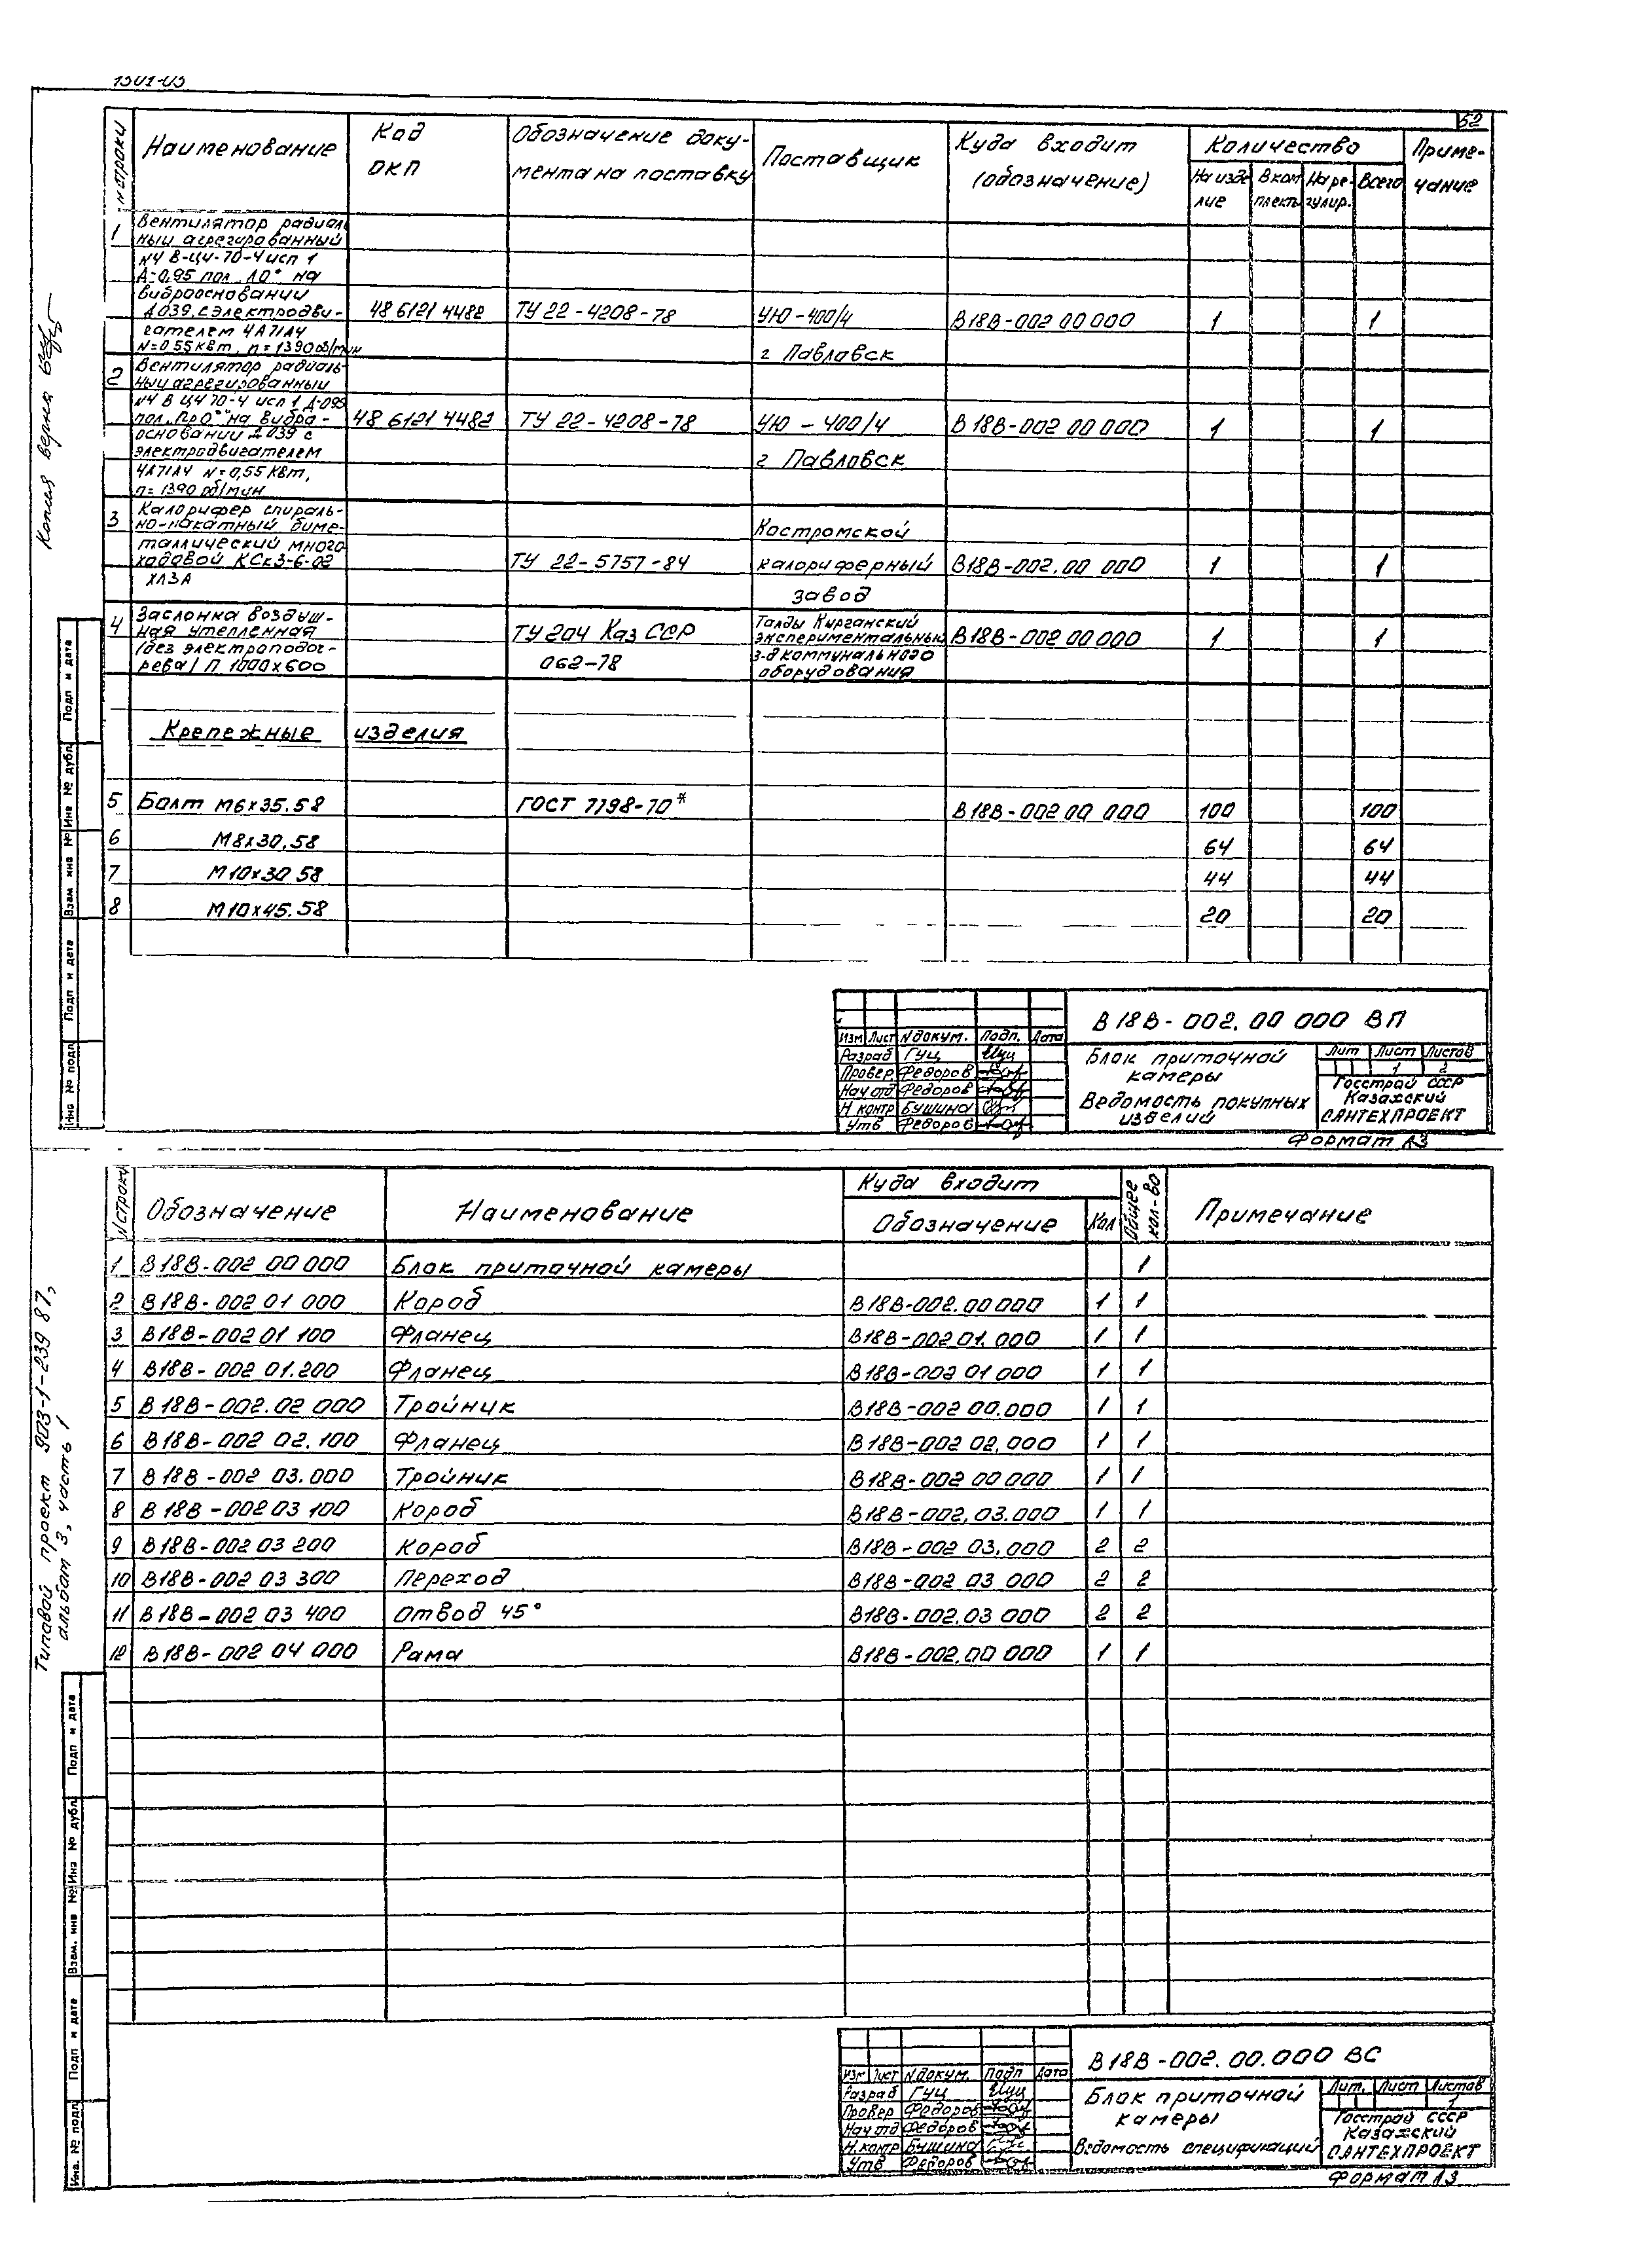 1301-03
52
№ строки Наименование Код ОКП Обозначение доку-мента на поставку Поставщик Куда входит (обозначение) Количество Приме-чание
На изде лие В ком плекты На ре-гулир. Всего
1 Вентилятор радиаль
ный агрегированный
N4 В-Ц4-70-4 исп 1
Д=0,95 пол. Л0° на
виброосновании
Д039, с электродви-
гателем 4А71А4
N=0,55 кВт, n=1390 об/мин
48 6121 4482 ТУ 22-4208-78 УЮ-400/4 В18В-002 00 000 1 1
г Павлавск
2 Вентилятор радиаль-
ный агрегированный
N4 В Ц4 70-4 исп 1 Д-095
пол. "Пр0°" на вибро-
основании Д 039 с
электродвигателем
4А71А4 N=0,55 кВт,
n=1390 об/мин
48 6121 4482 ТУ 22-4208-78 УЮ-400/4 В18В-002 00 000 1 1
г Павловск
3 Калорифер спираль-
но-накатный биме-
таллический много
ходовой КСк3-6-02
ХЛ3А
ТУ 22-5757-84 Костромской
калориферный
завод
В18В-002.00 000 1 1
4 Заслонка воздуш-
ная утепленная
(без электроподог-
рева) П 1000х600
ТУ 204 Каз ССР
062-78
Талды Курганский
экспериментальный
з-д коммунального
оборудования
В18В-002 00 000 1 1
Крепежные изделия
5 Болт М6х35.58 ГОСТ 7798-70* В18В-002 00 000 100 100
6 М8х30,58 64 64
7 М10х30 58 44 44
8 М10х45.58 20 20
В18В-002.00 000 ВП
Изм Лист N докум. Подп. Дата
Разраб Гуц
Провер Федоров
Нач отд Федоров
Н контр Бушина
Утв Федоров
Блок приточной
камеры
Ведомость покупных
изделий
Лит Лист Листов
1 2
Госстрай СССР
Казахский
САНТЕХПРОЕКТ
Формат А3
Копия верна
Подп и дата
Инв № дубл
Взам инв №
Подп и дата
Инв № подл
N строки Обозначение Наименование Куда входит Общее кол-во Примечание
Обозначение Кол
1 В18В-002 00 000 Блок приточной камеры 1
2 В18В-002 01 000 Короб В18В-002.00 000 1 1
3 В18В-002 01 100 Фланец В18В-002 01.000 1 1
4 В18В-002 01.200 Фланец В18В-002 01 000 1 1
5 В18В-002.02 000 Тройник В18В-002 00.000 1 1
6 В18В-002 02.100 Фланец В18В-002 02.000 1 1
7 В18В-002 03.000 Тройник В18В-002 00 000 1 1
8 В18В-002 03 100 Короб В18В-002.03.000 1 1
9 В18В-002 03 200 Короб В18В-002 03.000 2 2
10 В18В-002 03 300 Переход В18В-002 03 000 2 2
11 В18В-002 03 400 Отвод 45° В18В-002.03 000 2 2
12 В18В-002 04 000 Рама В18В-002.00 000 1 1
В18В-002.00.000 ВС
Изм Лист N докум. Подп Дата
Разраб Гуц
Провер Федоров
Нач отд Федоров
Н.контр Бушина
Утв Федоров
Блок приточной
камеры
Ведомость спецификаций
Лит. Лист Листов
1
Госстрай СССР
Казахский
САНТЕХПРОЕКТ
Формат А3
Типовой проект 903-1-239 87,
альбом 3, часть 1
Подп и дата
Инв № дубл
Взам. инв №
Подп и дата
Инв. № подл